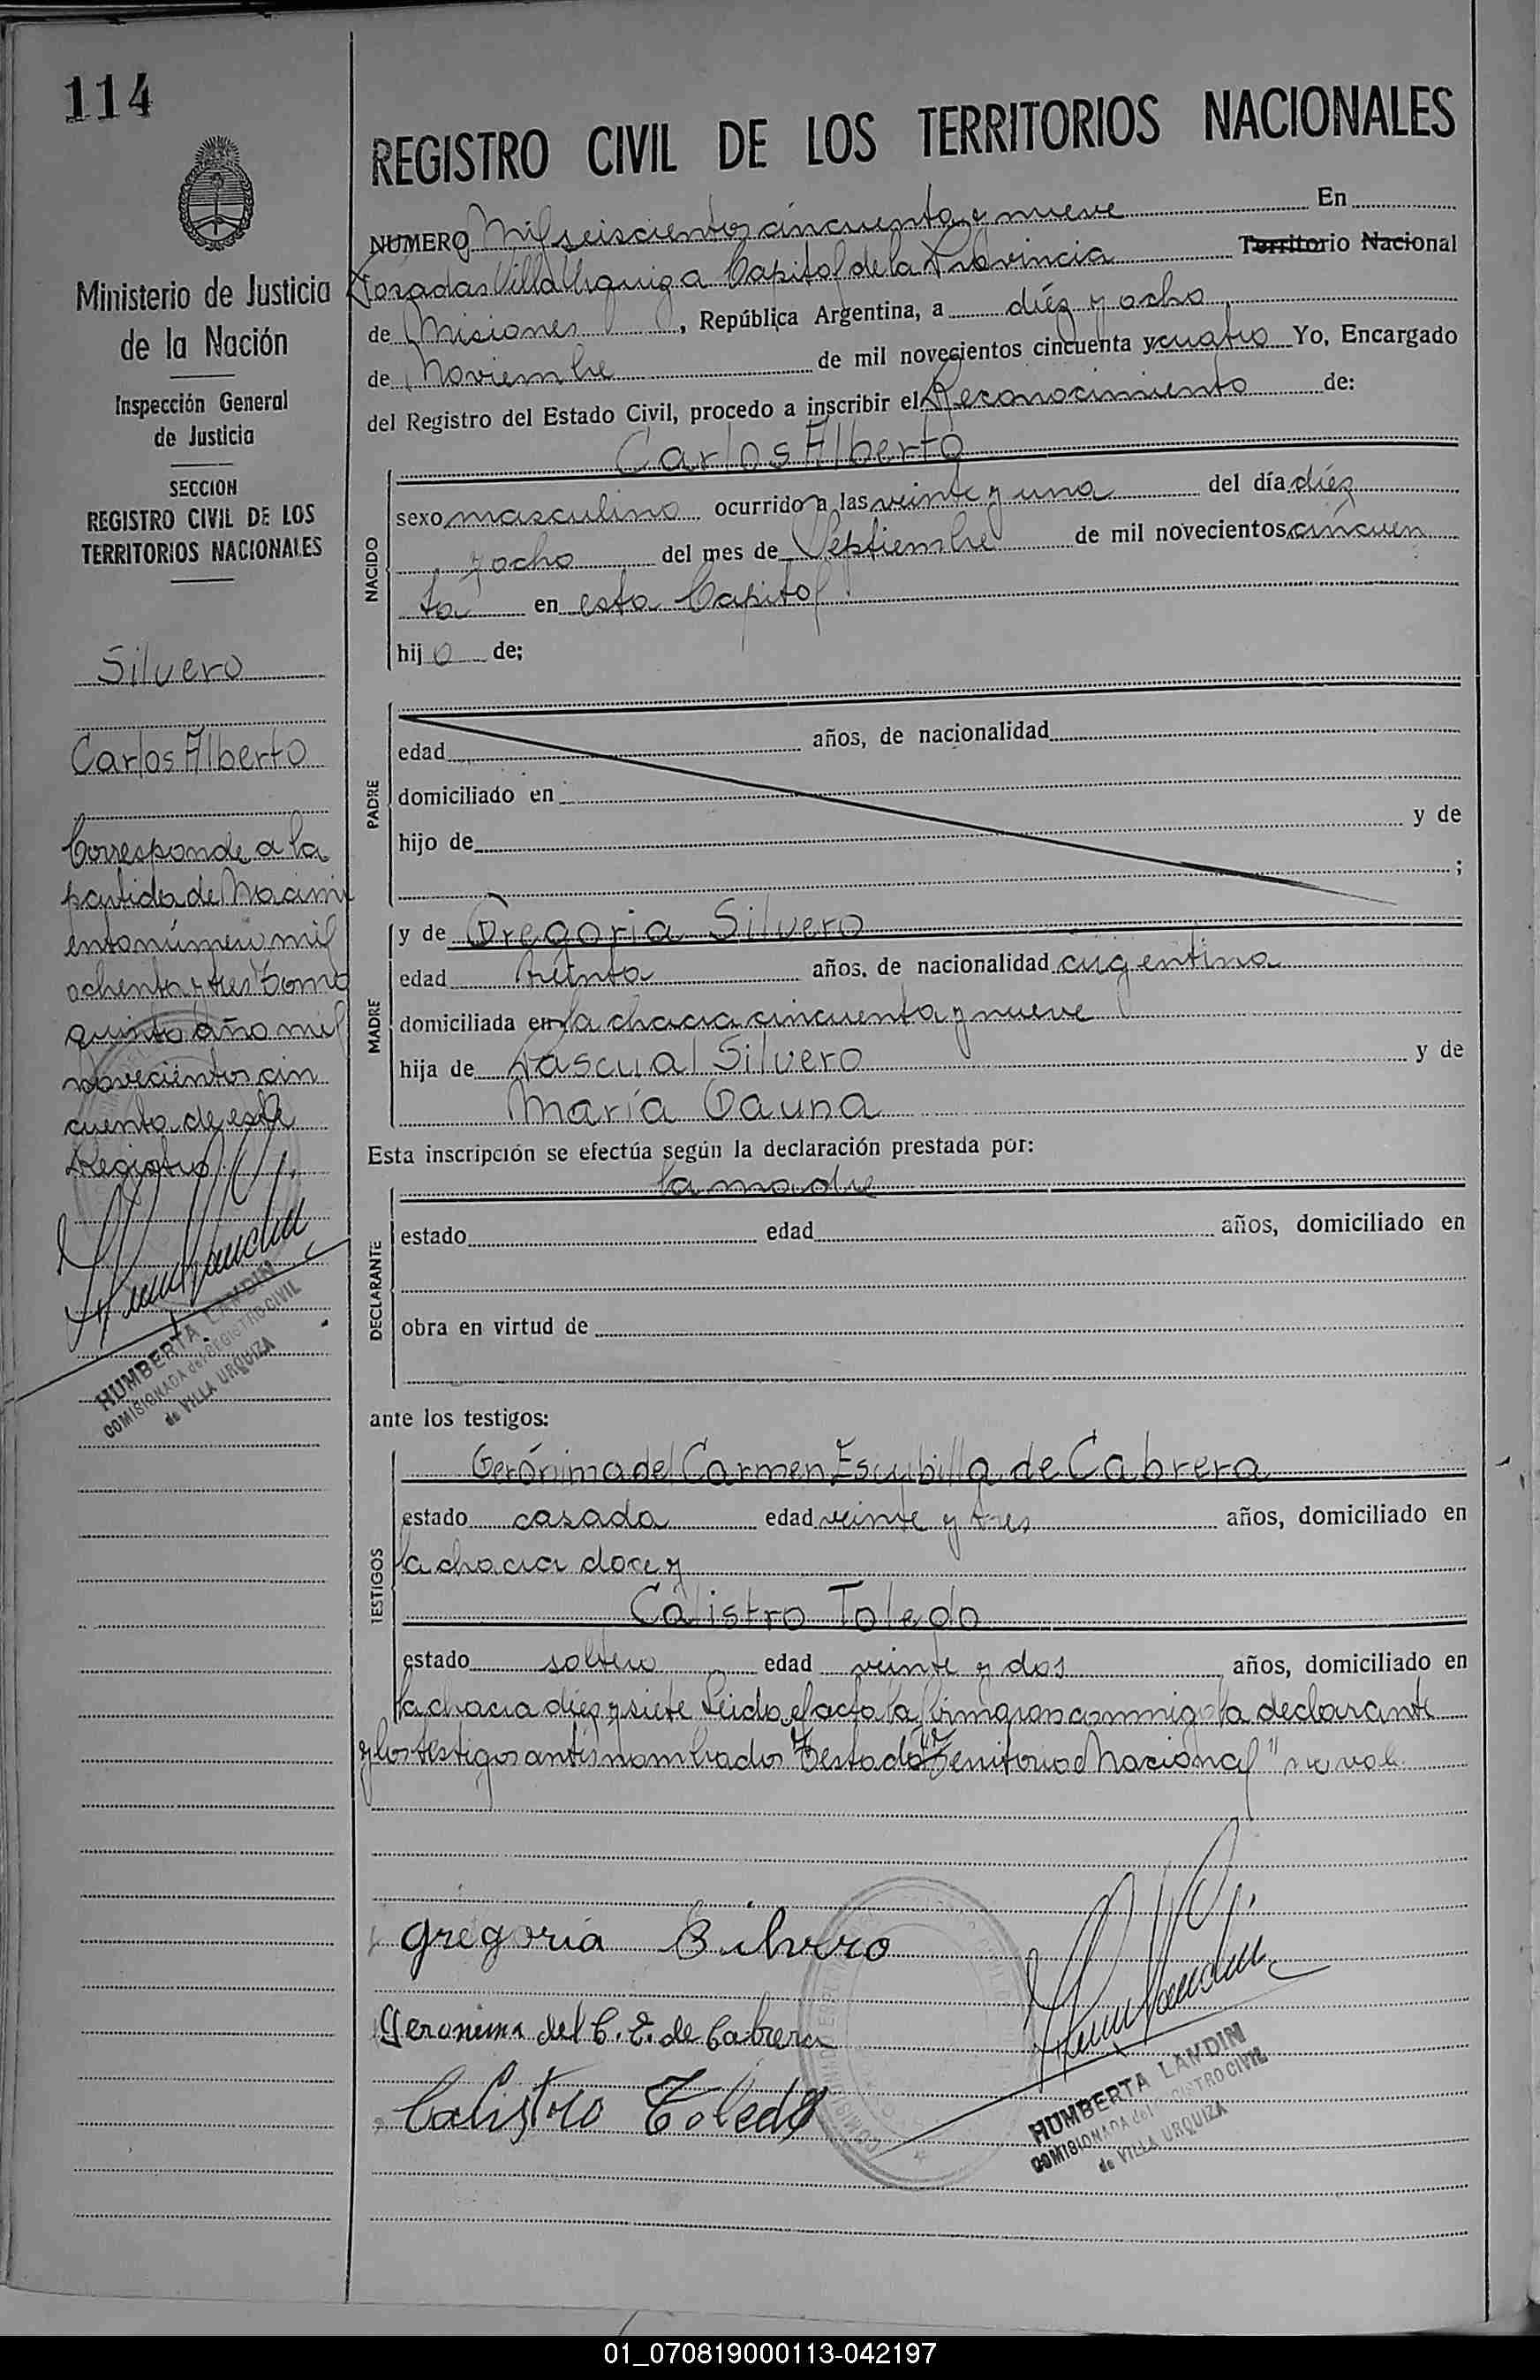 114
Ministerio de Justicia
de la Nación
Inspección General
de Justicia
SECCION
REGISTRO CIVIL DE LOS
TERRITORIOS NACIONALES
Silvero
Carlos Alberto
Corresponde a la
partida de Nacimi
ento número mil
ochenta y tres Tomo
quinto año mil
novecientos cin
cuenta de este
Registro
HUMBERTA LANDIN
COMISIONADA del REGISTRO CIVIL
de VILLA URQUIZA
REGISTRO CIVIL DE LOS TERRITORIOS NACIONALES
NUMERO Mil seiscientos cincuenta y nueve En
Posadas Villa Urquiza Capital de la Provincia Territorio Nacional
de Misiones, República Argentina, a diéz y ocho
de Noviembre de mil novecientos cincuenta y cuatro Yo, Encargado
del Registro del Estado Civil, procedo a inscribir el Reconocimiento de:
Carlos Alberto
NACIDO
sexo masculino ocurrido a las veinte y una del día diéz
y ocho del mes de Septiembre de mil novecientos cincuen
ta en esta Capital
hijo de;
PADRE
edad años, de nacionalidad
domiciliado en
hijo de y de
;
MADRE
y de Gregoria Silvero
edad treinta años, de nacionalidad argentina
domiciliada en la chacra cincuenta y nueve
hija de Pascual Silvero y de
María Gauna
Esta inscripción se efectúa según la declaración prestada por:
la madre
DECLARANTE
estado edad años, domiciliado en
obra en virtud de
ante los testigos:
TESTIGOS
Gerónima del Carmen Escubilla de Cabrera
estado casada edad veinte y tres años, domiciliado en
la chacra doce y
Calistro Toledo
estado soltero edad veinte y dos años, domiciliado en
la chacra diéz y siete Leída el acta la firmaron conmigo la declarante
y los testigos antes nombrados Testado "Territorio Nacional" no vale
Gregoria Silvero
Geronima del C. E. de Cabrera
Calistro Toledo
HUMBERTA LANDIN
COMISIONADA del REGISTRO CIVIL
de VILLA URQUIZA
01_070819000113-042197